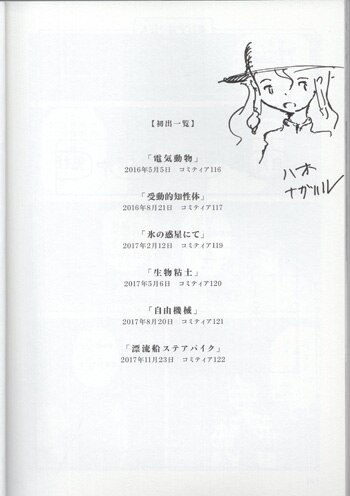 【初出一覧】
「電気動物」
2016年5月5日 コミティア116
「受動的知性体」
2016年8月21日 コミティア117
「氷の惑星にて」
2017年2月12日 コミティア119
「生物粘土」
2017年5月6日 コミティア120
「自由機械」
2017年8月20日 コミティア121
「漂流船ステアパイク」
2017年11月23日 コミティア122
八木
ナガハル